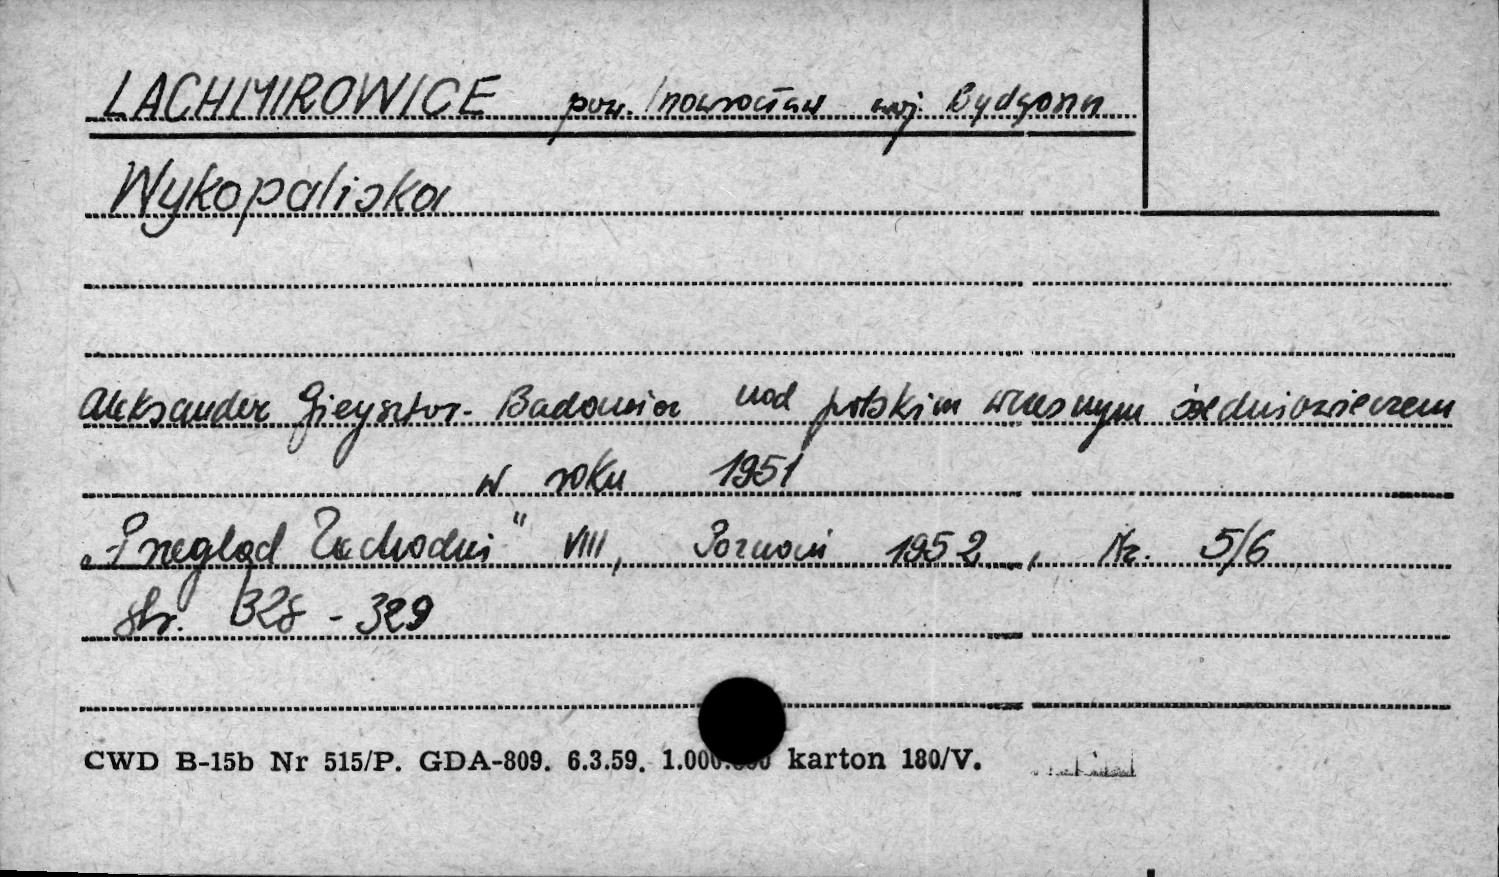 LACHMIROWICE pow. Inowrocław woj. Bydgoszcz
Wykopaliska
Aleksander Gieysztor - Badania nad polskim wczesnym średniowieczem
w roku 1951
„Przegląd Zachodni" VIII, Poznań 1952, Nr. 5/6
str. 328 - 329
CWD B-15b Nr 515/P. GDA-809. 6.3.59. 1.000.000 karton 180/V.